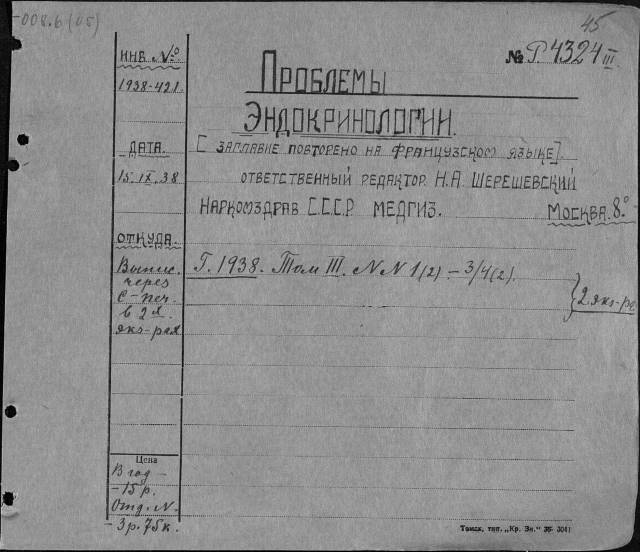 -008.6 (05)
45
№ Р 4324 III
ИНВ. №
1938-421
ПРОБЛЕМЫ
ЭНДОКРИНОЛОГИИ.
ДАТА.
[ ЗАГЛАВИЕ ПОВТОРЕНО НА ФРАНЦУЗСКОМ ЯЗЫКЕ].
15.IX.38
ОТВЕТСТВЕННЫЙ РЕДАКТОР Н.А ШЕРЕШЕВСКИЙ
НАРКОМЗДРАВ СССР МЕДГИЗ. МОСКВА. 8°
ОТКУДА.
Выпис. Г. 1938. Том III. N N 1(2) – 3/4(2).
через
С-печ.
в 2х
экз-рах
} 2 экз-ра
Цена
В год –
– 15 р.
Отд. N.
– 3 р. 75 к.
Томск. тип. „Кр. Зн." 35-3041